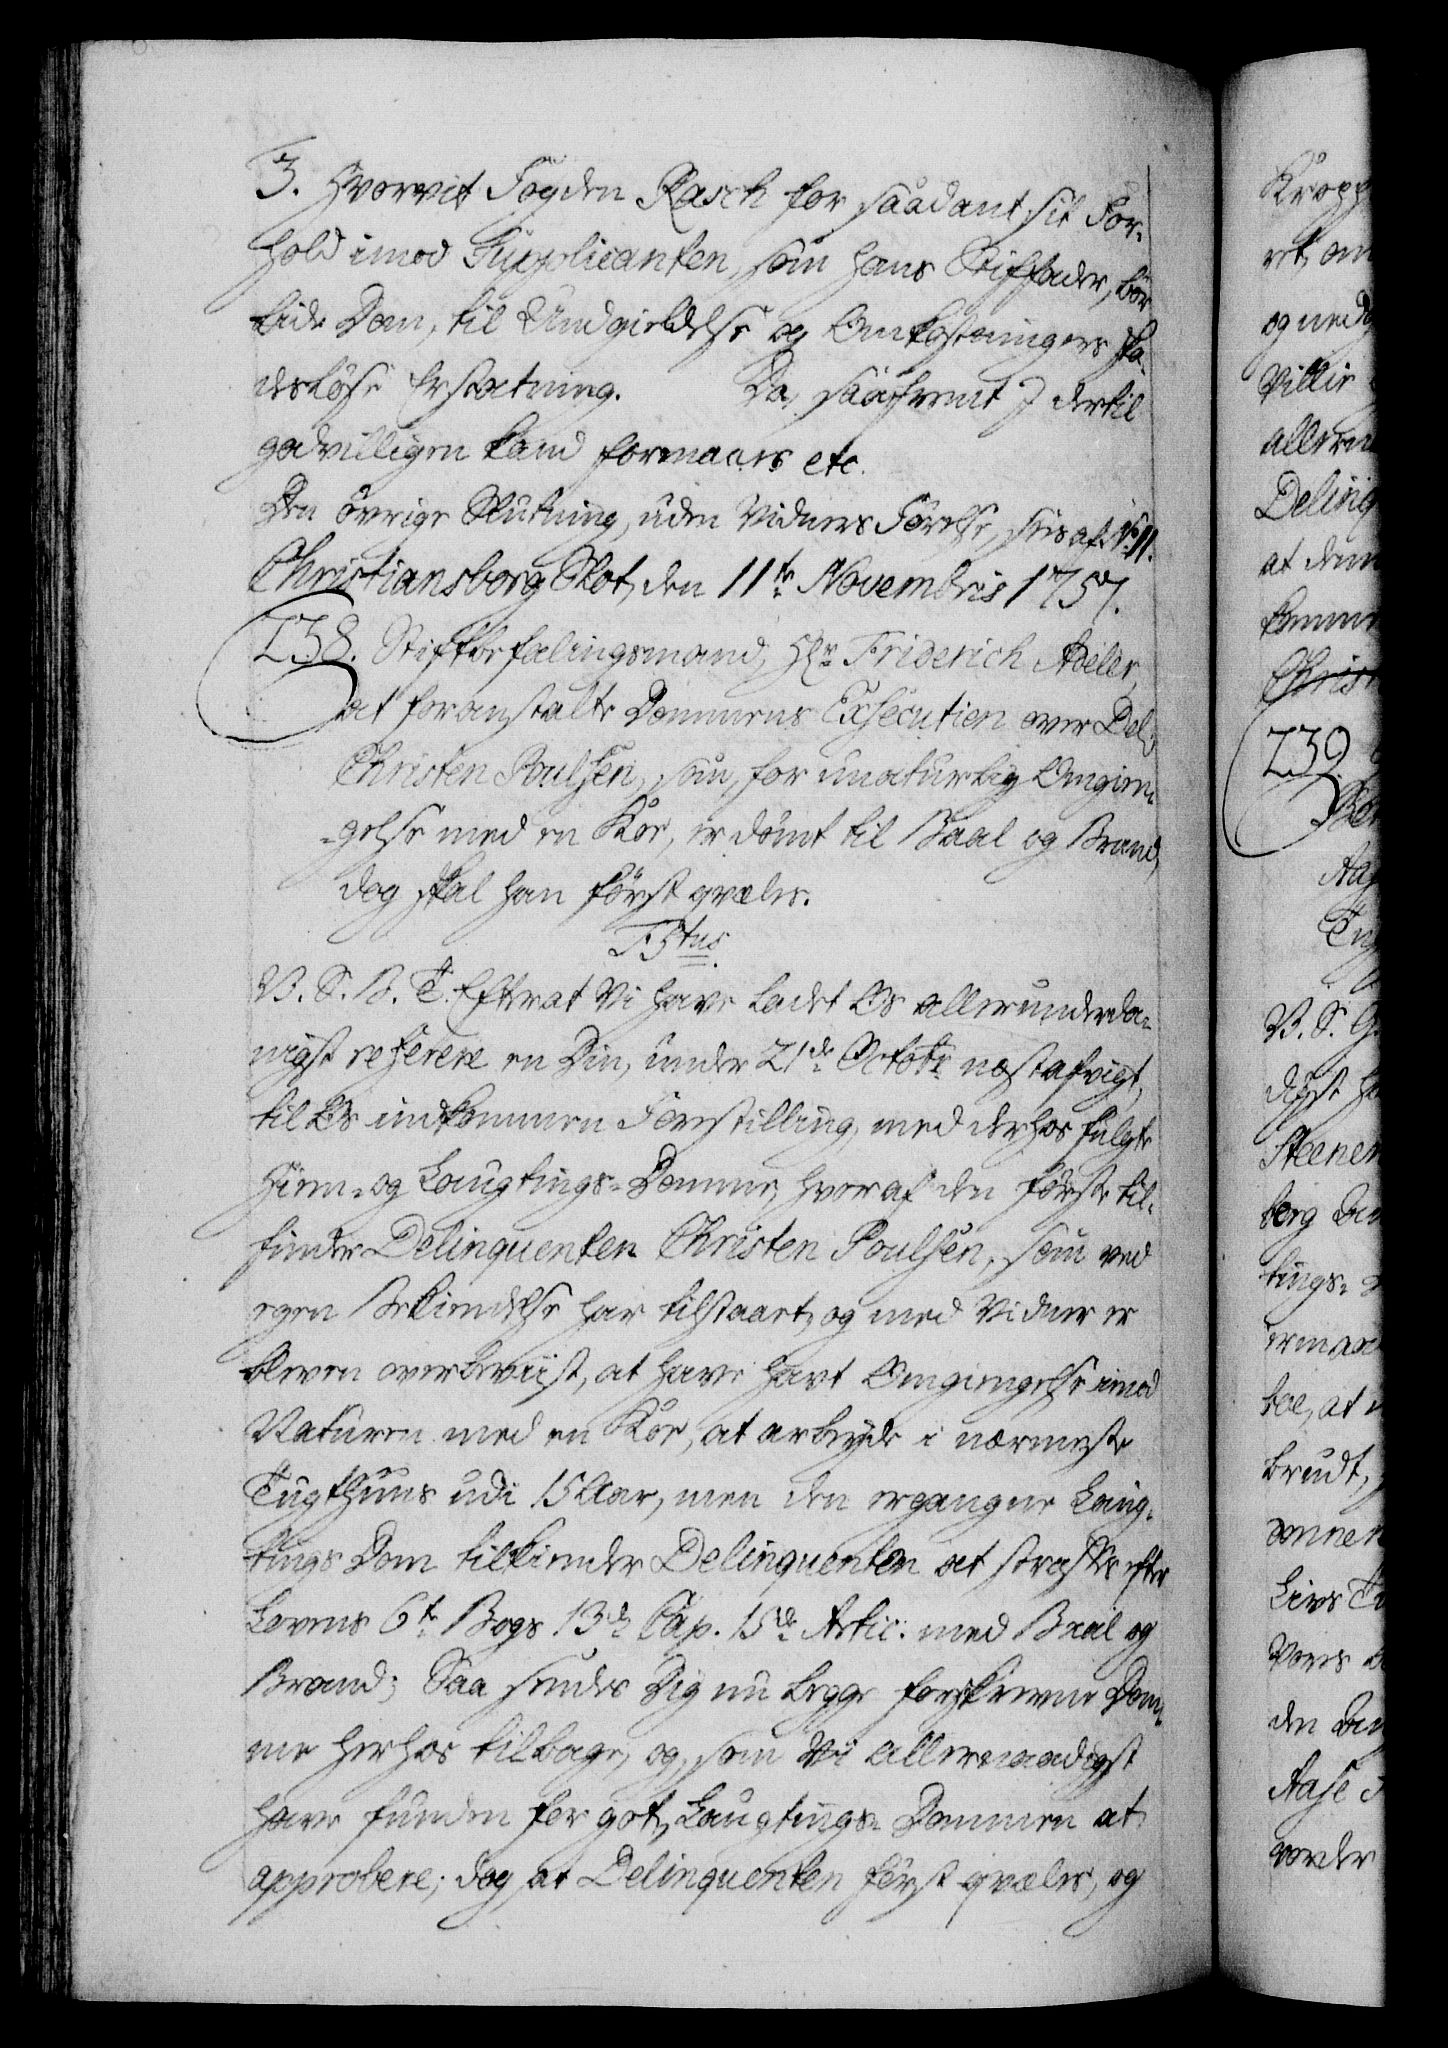 3. Hvorvit Fogden Rasch for saadant sit For-
hold imod Supplicanten, som hans Stiffader, bör
lide Dom, til Undgieldelse og Omkostningers Ska-
deslöse Erstatning. Da, saafremt I dertil
godvilligen kand formaaes etc.
Den övrige Slutning, uden Vidners Förelse, sees af No 11.
Christiansborg Slot, den 11te Novembris 1757.
238. Stiftbefalingsmand, Hr Friderich Adeler,
at foranstalte Dommens Exsecution over Del:
Christen Poulsen, som, for unaturlig Omgien-
-gelse med en Koe, er dömt til Baal og Brand,
dog skal han först qvæles.
F5tus.
V. S. B. T. Efterat Vi have ladet Os allerunderda-
nigst referere en Din, under 21de Octobr næstafvigt,
til Os indkommen Forestilling, med derhos fulgte
Hiem- og Laugtings-Domme, hvoraf den förste til-
finder Delinquenten Christen Poulsen, som ved
egen Bekiendelse har tilstaaet, og med Vidner er
bleven overbeviist, at have havt Omgiengelse imod
Naturen med en Koe, at arbeyde i nærmeste
Tugthuus udi 15 Aar, men den ergangne Laug-
tings Dom tilkiender Delinquenten at straffes efter
Lovens 6te Bogs 13de Cap. 15de Artic: med Baal og
Brand; Saa sendes Dig nu begge forskrevne Dom-
me herhos tilbage, og, som Vi allernaadigst
have funden for got, Laugtings-Dommen at
approbere; dog, at Delinquenten först qvæles, og